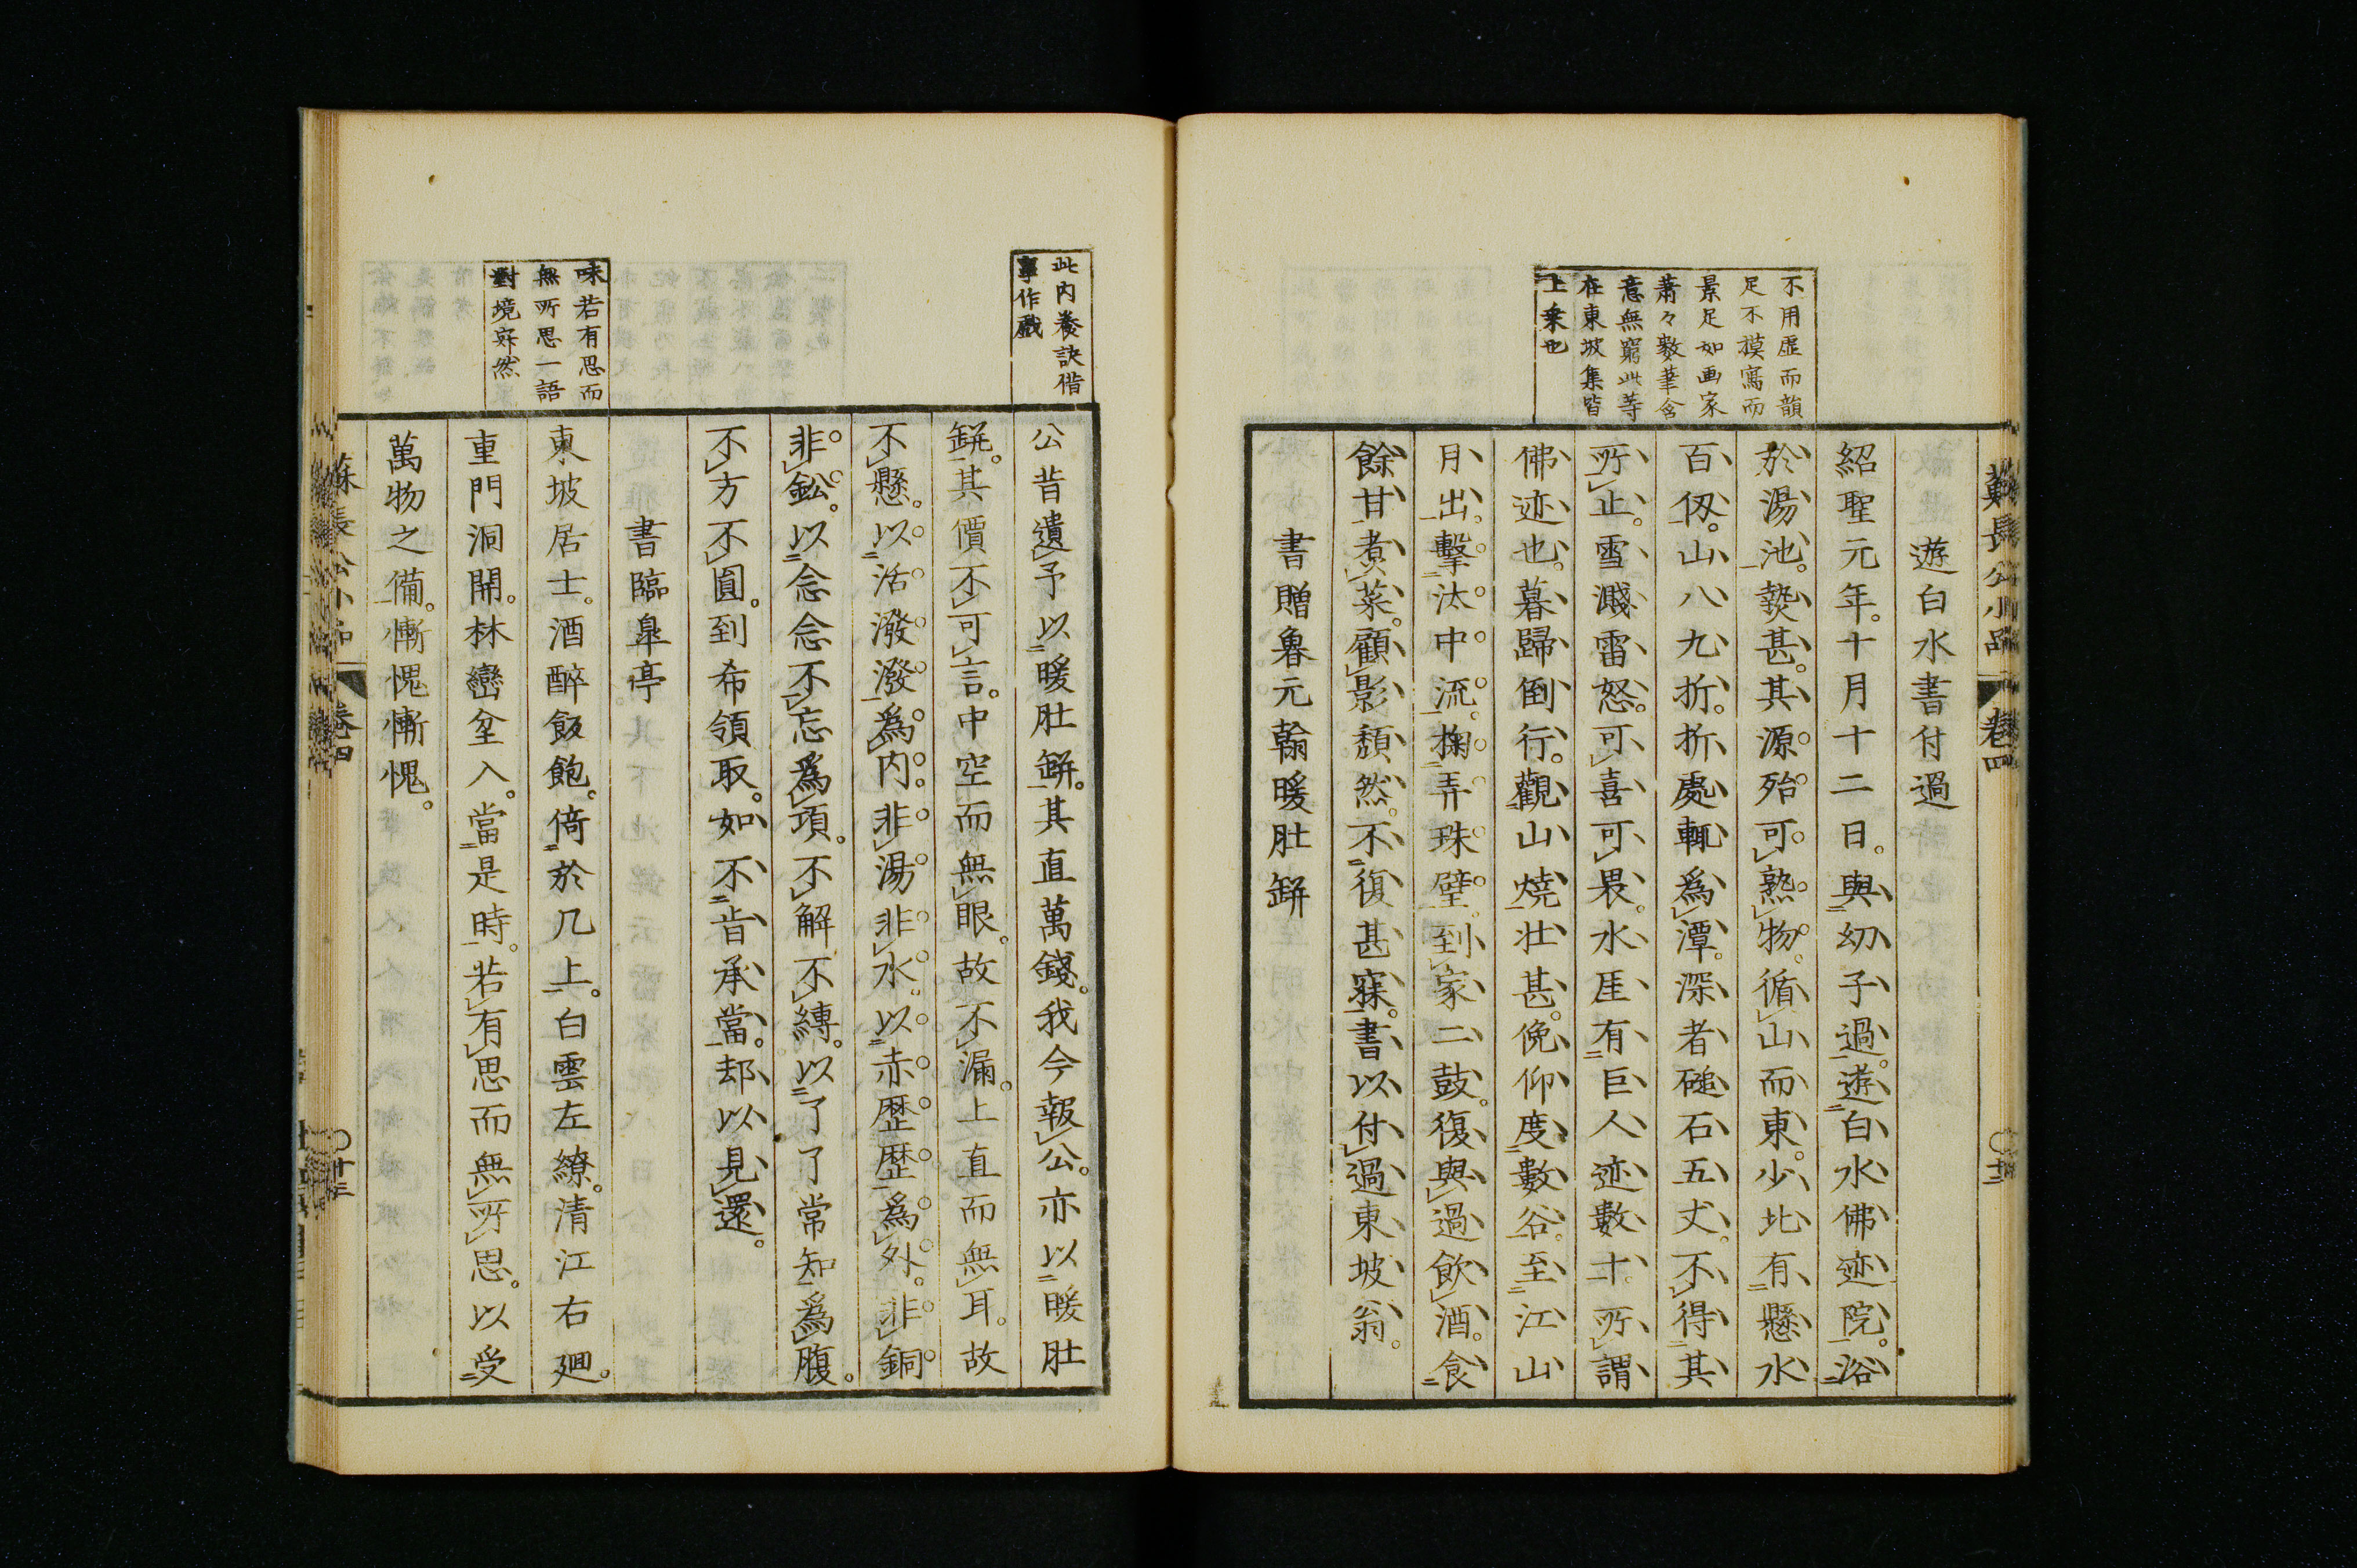 蘇長公小品
卷四
不用虛而韻
足不摸寫而
景足如画家
蕭々數筆含
意無窮此等
在東坡集皆
上乗也
遊白水書付過
紹聖元年。十月十二日。與幼子過。遊白水佛迹院。浴
於湯池。𤍠甚。其源殆可熟物。循山而東。少北有懸水
百仭。山八九折。折處輒為潭。深者磓石五丈。不得其
所止。雪濺雷怒。可喜可畏。水厓有巨人迹數十。所謂
佛迹也。暮歸倒行。觀山燒壮甚。俛仰度數谷。至江山
月出。擊汰中流。掬弄珠璧。到家二鼓。復與過飲酒。食
餘甘煮菜。顧影頹然。不復甚寐。書以付過東坡翁。
書贈魯元翰暖肚缾
此内養訣借
事作戲
公昔遺予以暖肚缾。其直萬錢。我今報公。亦以暖肚
缾。其價不可言。中空而無眼。故不漏。上直而無耳。故
不懸。以活潑潑為内。非湯非水。以赤歴歴為外。非銅
非鈆。以念念不忘為項。不解不縛。以了了常知為腹。
不方不圓。到希領取。如不肯承當。却以見還。
書臨皐亭
味若有思而
無所思一語
對境寂然
東坡居士。酒醉飯飽。倚於几上。白雲左繚。清江右廻。
重門洞開。林巒坌入。當是時。若有思而無所思。以受
萬物之備。慚愧慚愧。
蘇長公小品
卷四